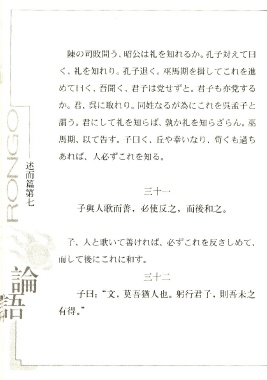 陳の司敗問う、昭公は礼を知れるか。孔子対えて曰
く、礼を知れり。孔子退く、巫馬期を揖してこれを進
めて曰く、吾聞く、君子は党せずと。君子も亦党する
か。君、呉に取れり。同姓なるが為にこれを呉孟子と
謂う。君にして礼を知らば、孰か礼を知らざらん。巫
馬期、以て告す。子曰く、丘や幸いなり、苟くも過ち
あれば、人必ずこれを知る。
三十一
子與人歌而善，必使反之，而後和之。
子、人と歌いて善ければ、必ずこれを反さしめて、
而して後にこれに和す。
三十二
子曰："文，莫吾猶人也。躬行君子，則吾未之
有得。"
RONGO
述而篇第七
論語